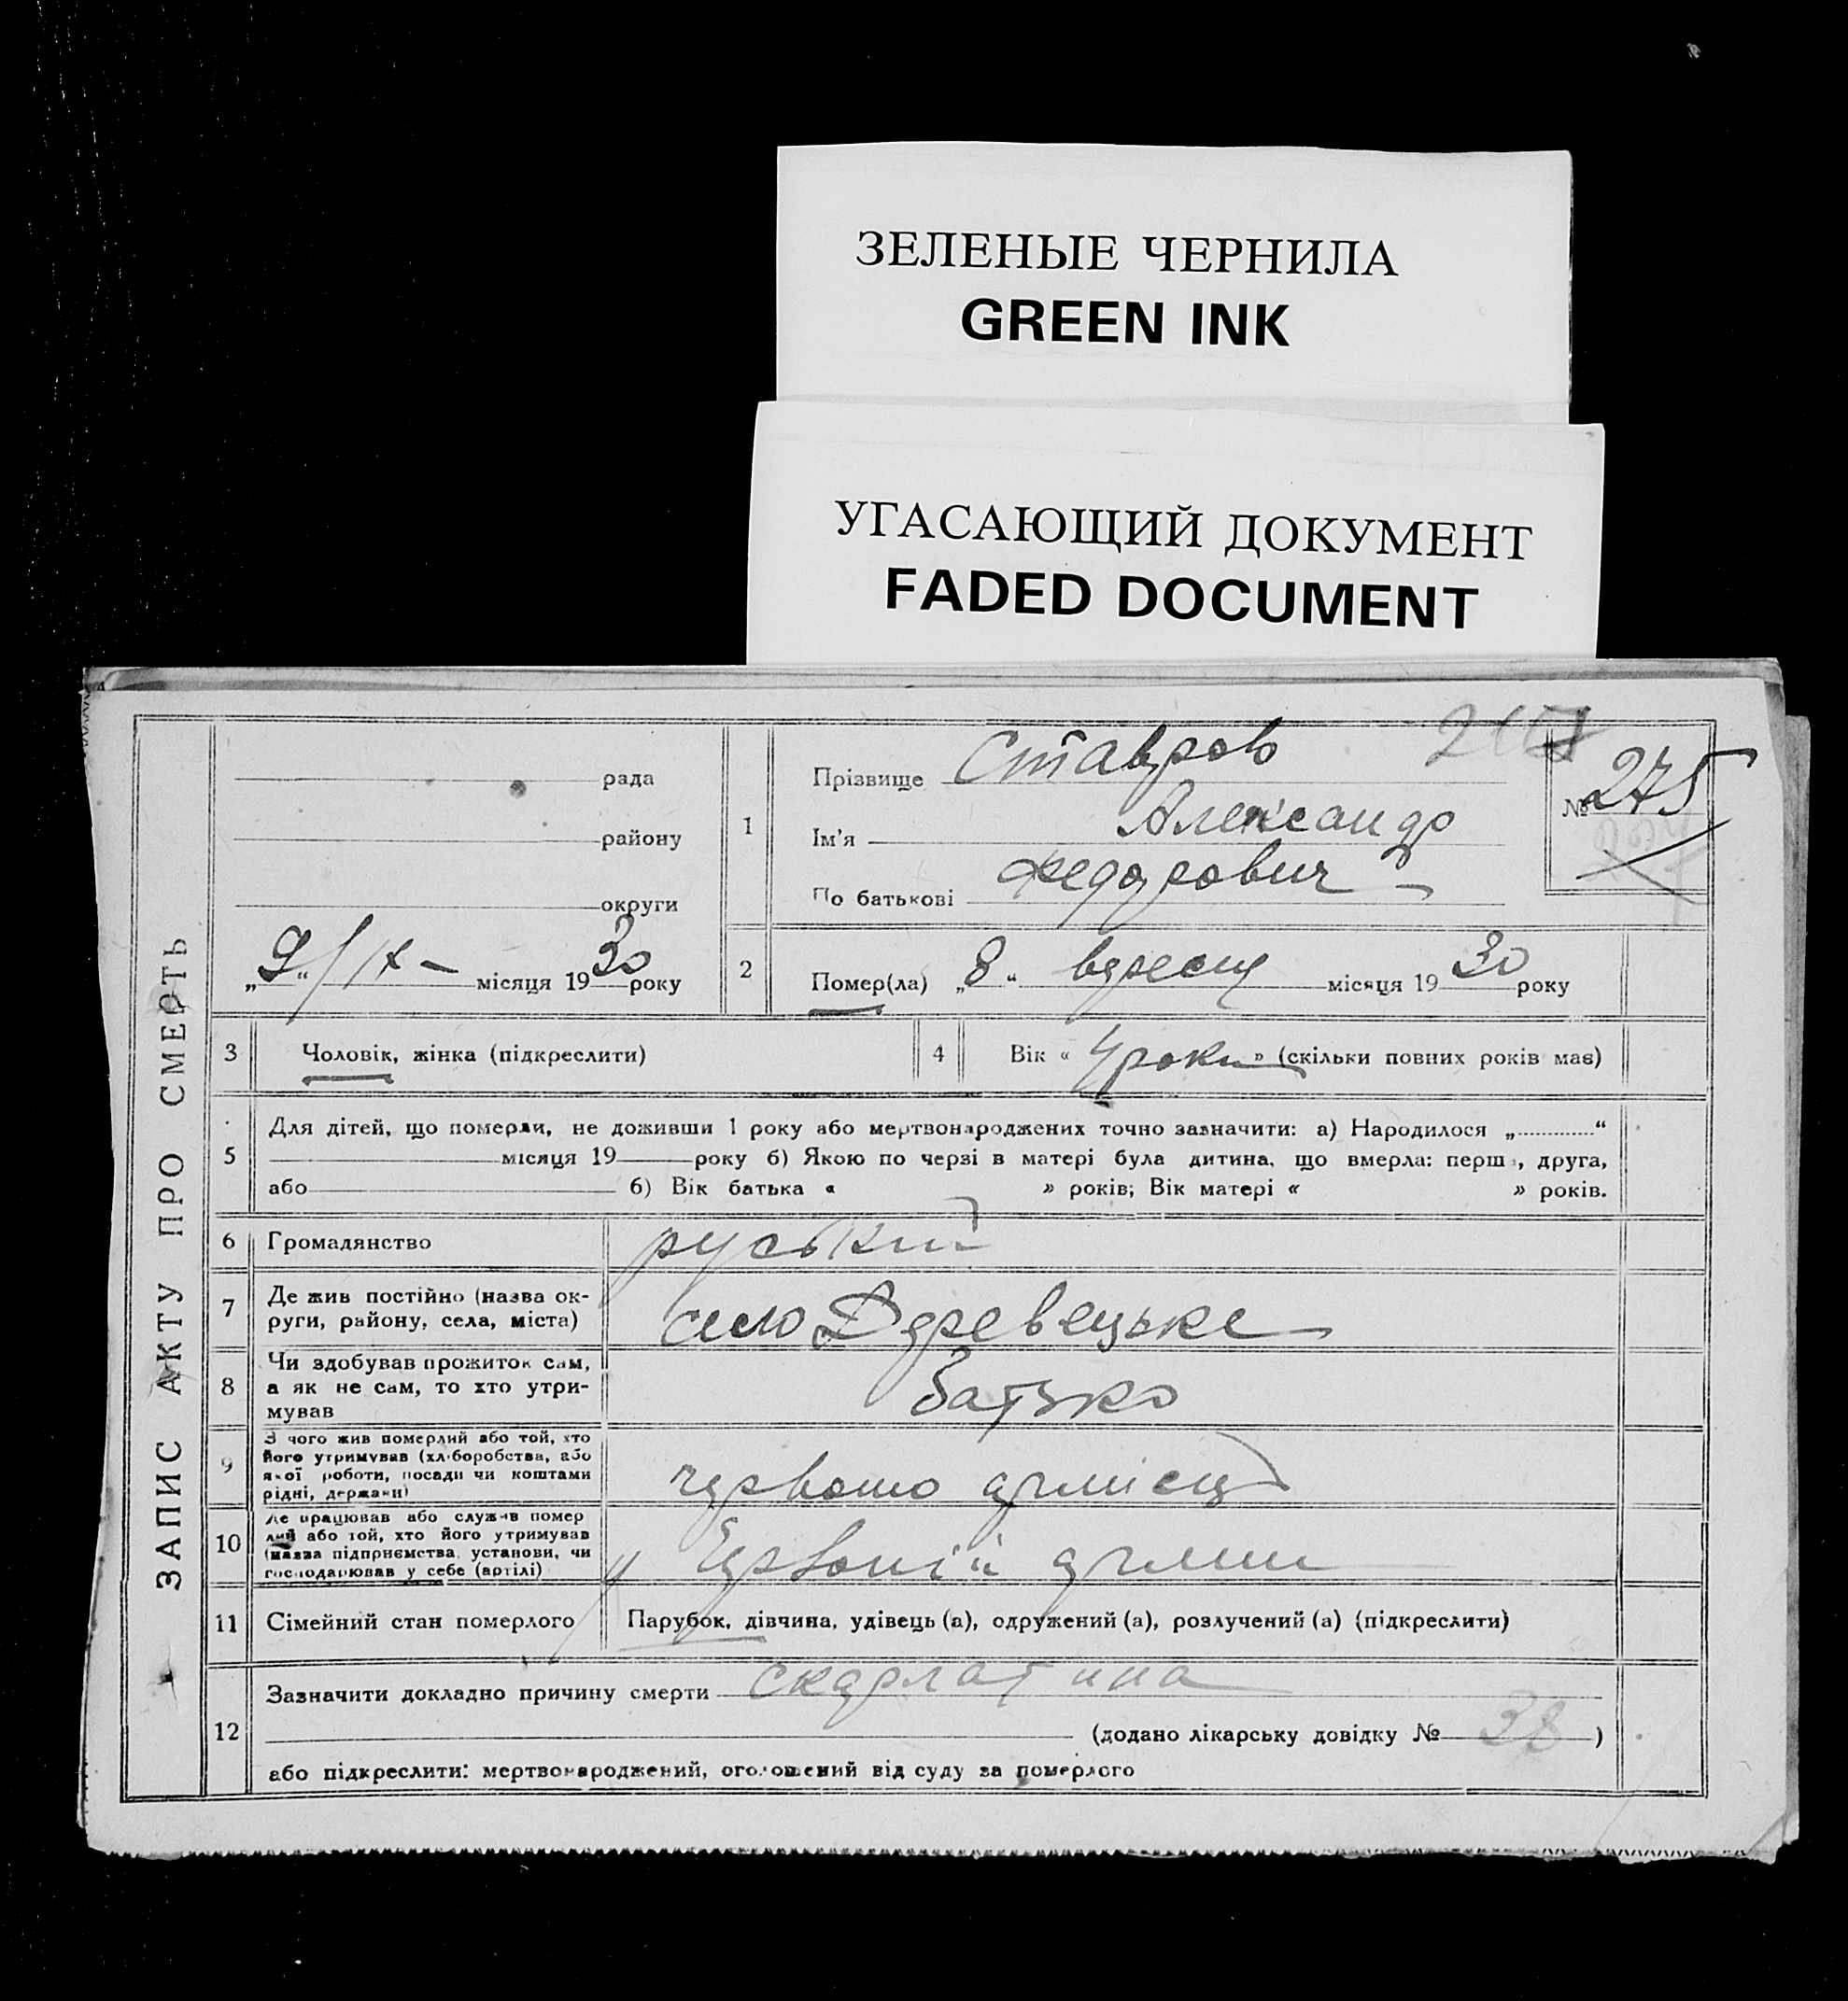 ЗЕЛЕНЫЕ ЧЕРНИЛА
GREEN INK
УГАСАЮЩИЙ ДОКУМЕНТ
FADED DOCUMENT
ЗАПИС АКТУ ПРО СМЕРТЬ
рада
району
округи
„9“/IX – місяця 1930 року
1
Прізвище Ставров
Ім'я Александр
По батькові Федорович
№ 275
2
Помер(ла) „8“ вересня місяця 1930 року
3
Чоловік, жінка (підкреслити)
4
Вік « 4 роки » (скільки повних років має)
5
Для дітей, що померли, не доживши 1 року або мертвонароджених точно зазначити: а) Народилося „ “
місяця 19 року б) Якою по черзі в матері була дитина, що вмерла: перша, друга,
або б) Вік батька « » років; Вік матері « » років.
6
Громадянство руський
7
Де жив постійно (назва ок-
руги, району, села, міста)
село Деревецьке
8
Чи здобував прожиток сам,
а як не сам, то хто утри-
мував
Батько
9
З чого жив померлий або той, хто
його утримував (хліборобства, або
якої роботи, посади чи коштами
рідні, держави)
червоно армієць
10
Де працював або служив помер
лий або той, хто його утримував
(назва підприємства, установи, чи
господарював у себе (артілі)
у Червоній армии
11
Сімейний стан померлого
Парубок, дівчина, удівець (а), одружений (а), розлучений (а) (підкреслити)
12
Зазначити докладно причину смерти скарлатина
(додано лікарську довідку № 38 )
або підкреслити: мертвонароджений, оголошений від суду за померлого